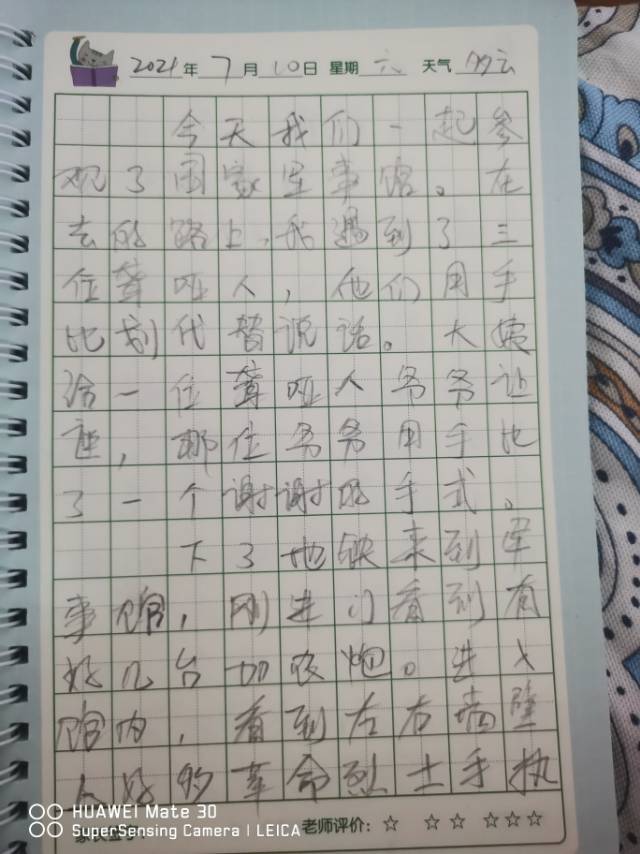 2021年 7月 10日 星期 六 天气 多云
今天我们一起参
观了国家军事馆。在
去的路上,我遇到了三
位聋哑人,他们用手
比划代替说话。大姨
给一位聋哑人爷爷让
座,那位爷爷用手比
了一个谢谢的手式。
下了地铁来到军
事馆,刚进门看到有
好几台加农炮。进入
馆内,看到左右墙壁
上好多革命烈士手执
老师评价: ☆ ☆☆ ☆☆☆
HUAWEI Mate 30
SuperSensing Camera | LEICA